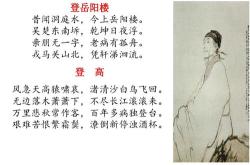 登岳阳楼
昔闻洞庭水，今上岳阳楼。
吴楚东南坼，乾坤日夜浮。
亲朋无一字，老病有孤舟。
戎马关山北，凭轩涕泗流。
登 高
风急天高猿啸哀，渚清沙白鸟飞回。
无边落木萧萧下，不尽长江滚滚来。
万里悲秋常作客，百年多病独登台。
艰难苦恨繁霜鬓，潦倒新停浊酒杯。